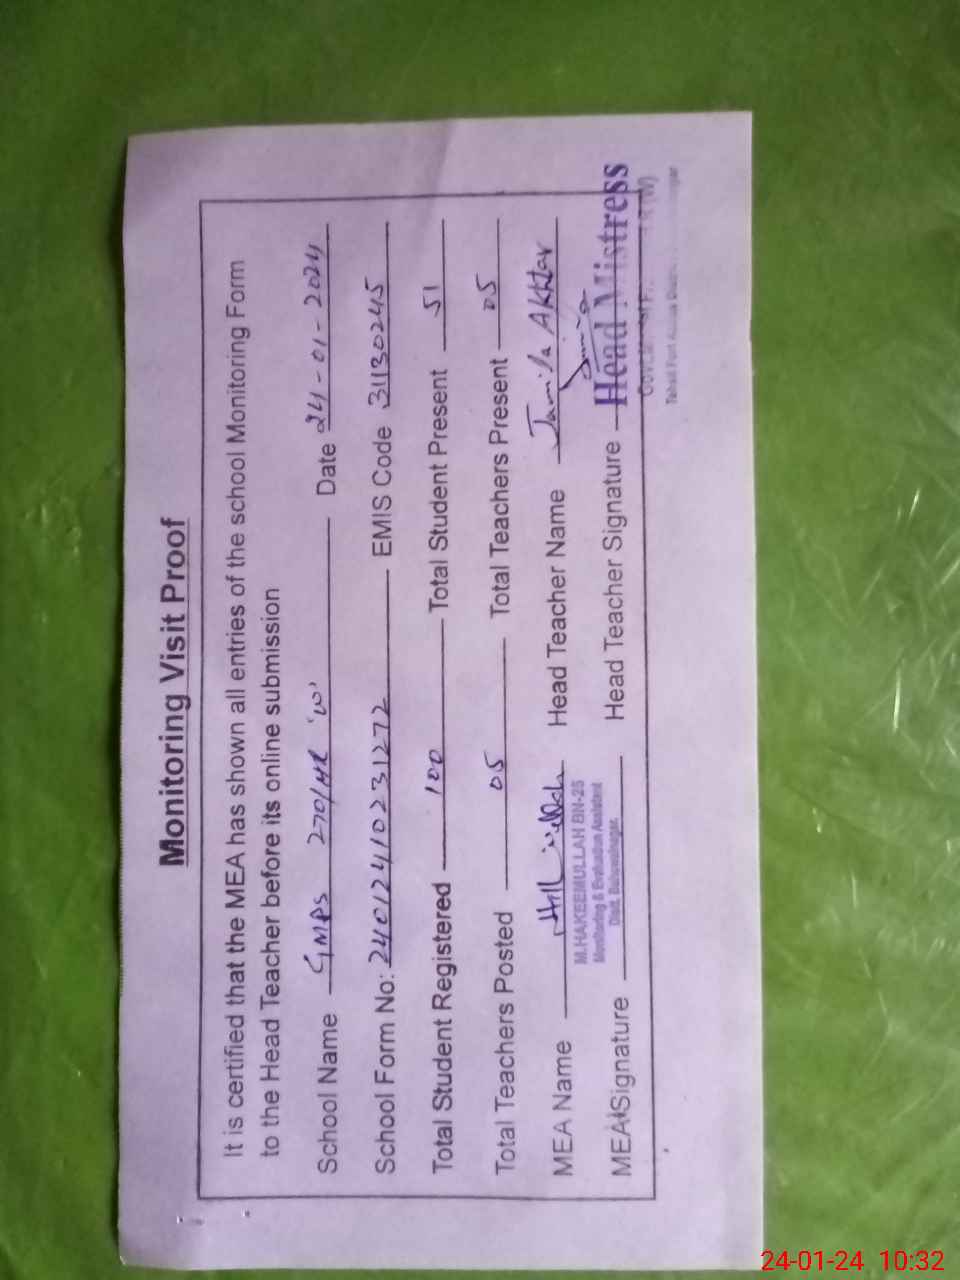 Monitoring Visit Proof
It is certified that the MEA has shown all entries of the school Monitoring Form
to the Head Teacher before its online submission
School Name GMPS 270/HR 'W' Date 24-01-2024
School Form No: 24012410231272 EMIS Code 31130245
Total Student Registered 100 Total Student Present 51
Total Teachers Posted 05 Total Teachers Present 05
MEA Name Head Teacher Name Jamila Akhtar
M.HAKEEMULLAH BN-25
Monitoring & Evaluation Assistant
Distt. Bahawalnagar.
MEA Signature Head Teacher Signature Head Mistress
(W)
24-01-24 10:32